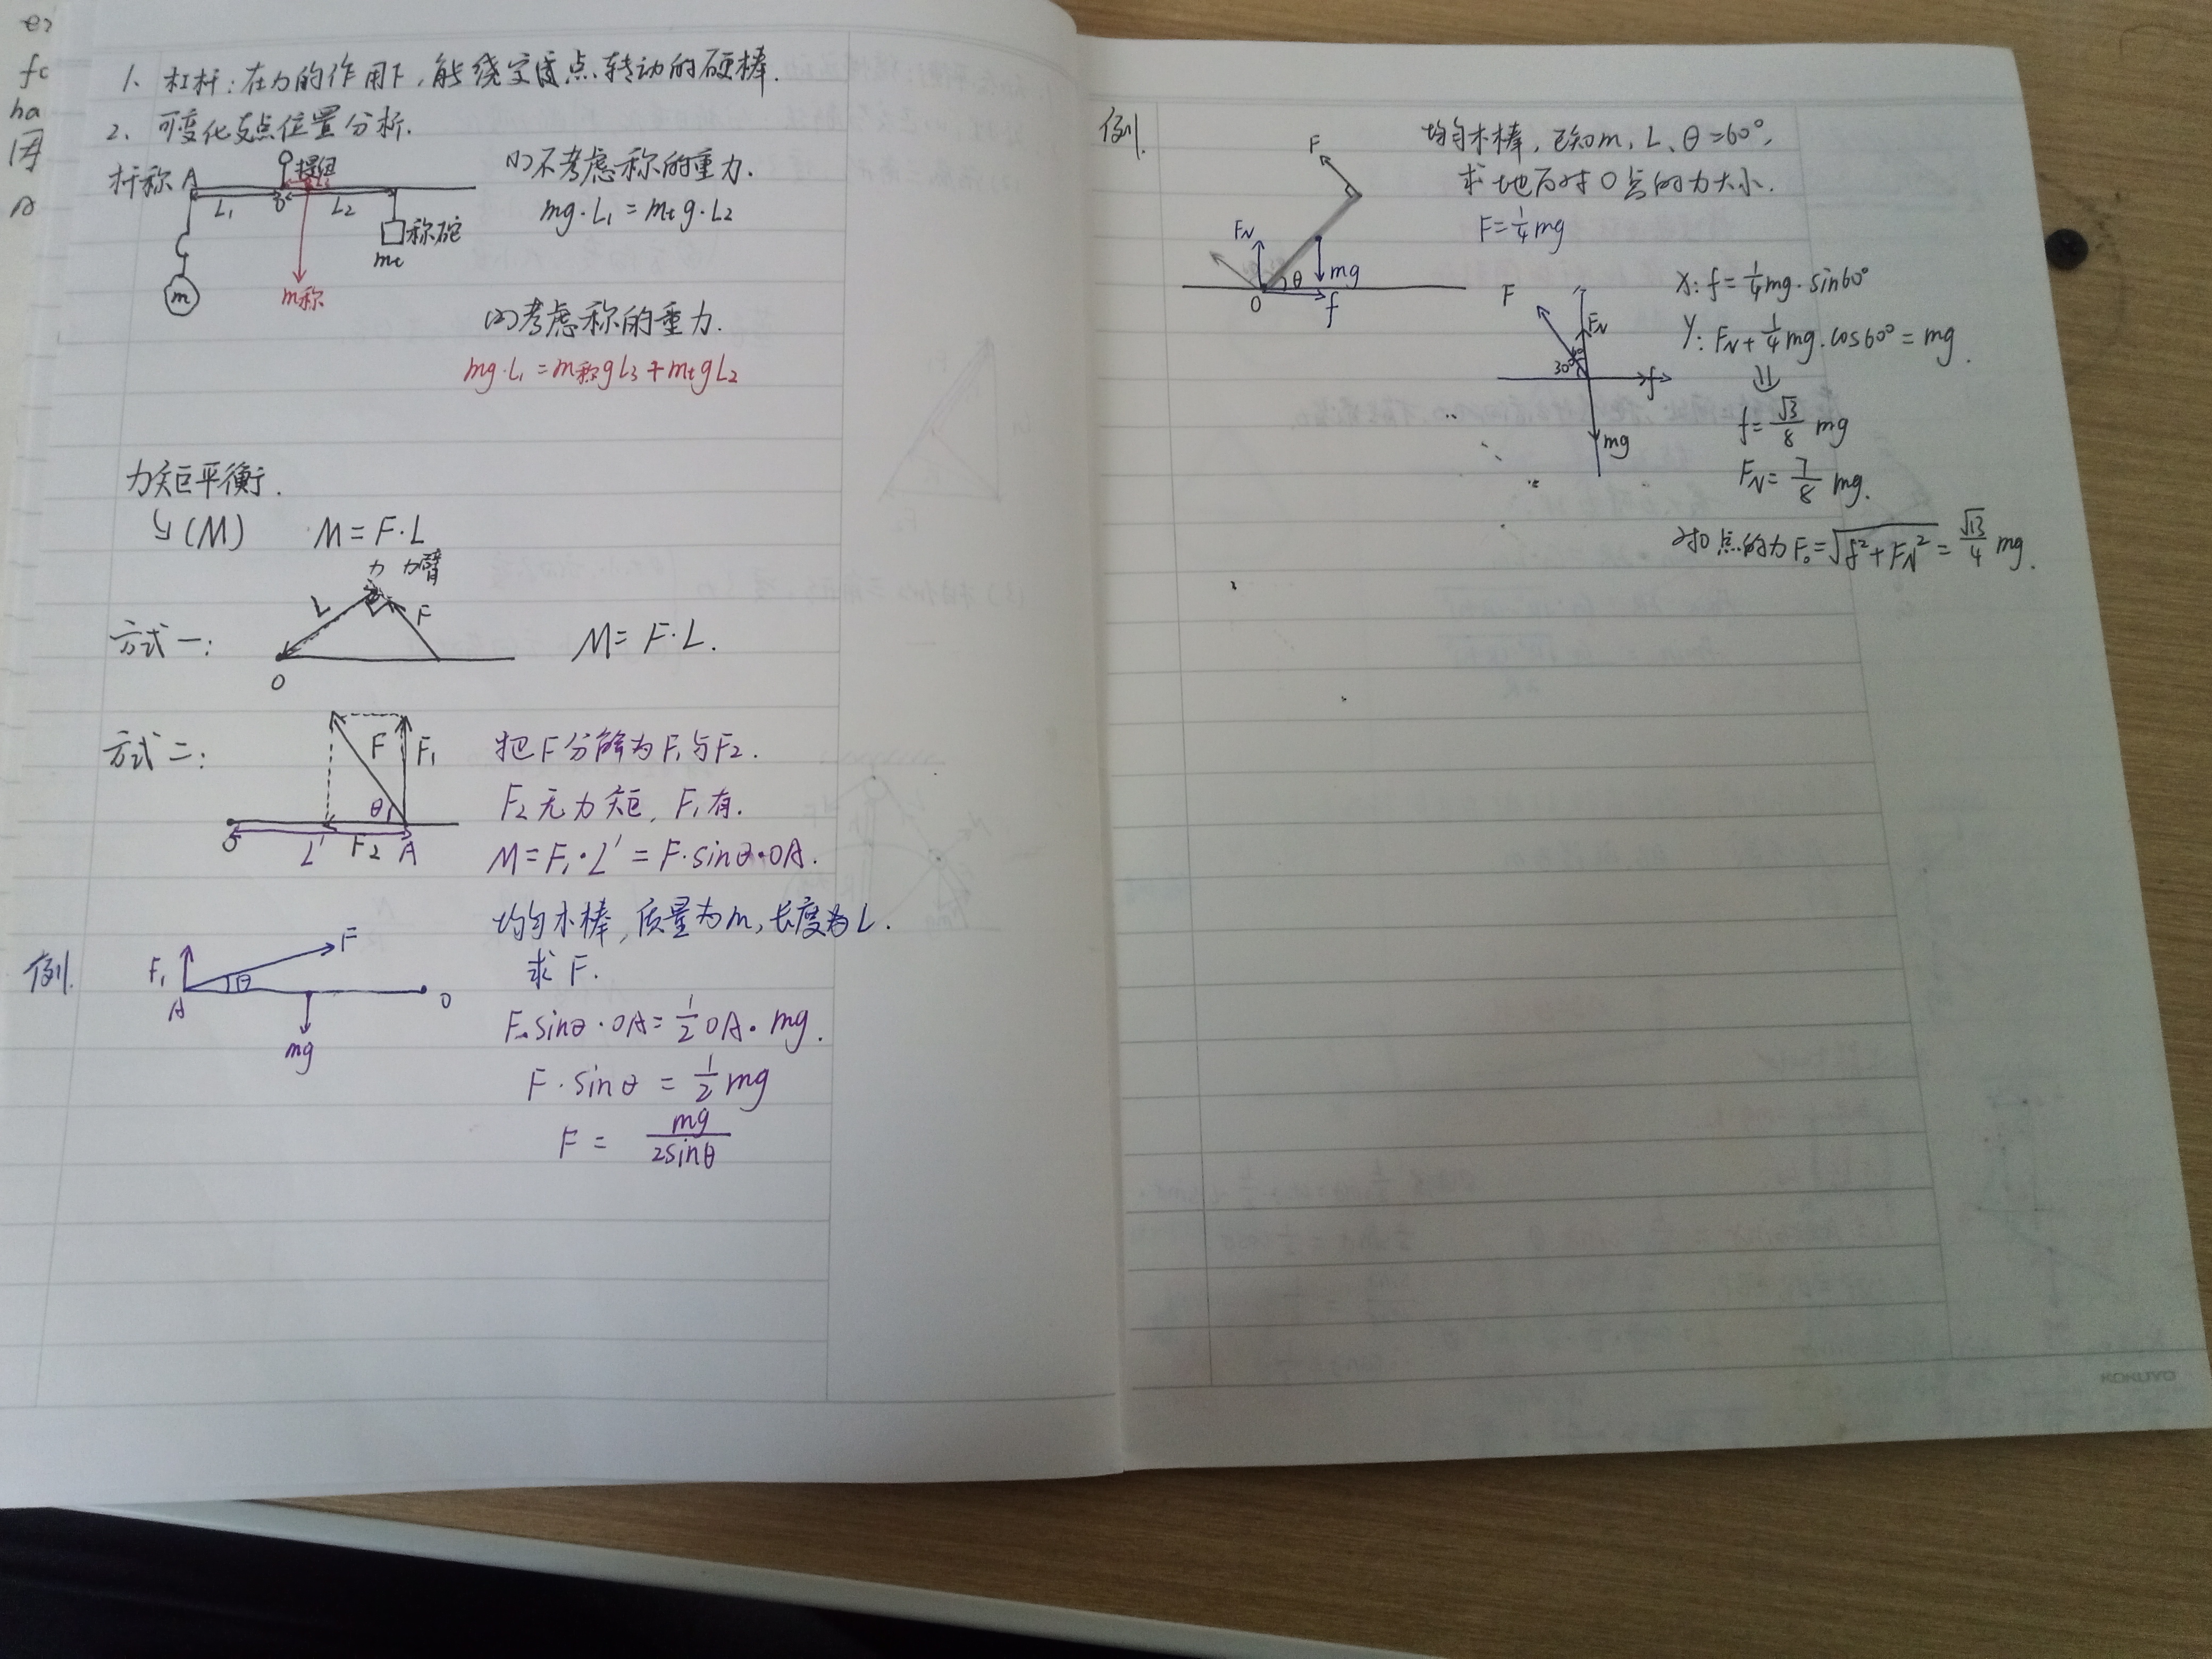 1、杠杆：在力的作用下，能绕定点转动的硬棒.
2、可变化支点位置分析.
杆称 A 提纽
L₁ L₂
称砣
mt
m
m称
(1)不考虑称的重力.
mg·L₁=mtg·L₂
(2)考虑称的重力.
mg·L₁=m称gL₃+mtgL₂
力矩平衡.
↳(M) M=F·L
力 力臂
方式一：
L F
O
M=F·L.
方式二：
F F₁
θ
O L' F₂ A
把F分解为F₁与F₂.
F₂无力矩，F₁有.
M=F₁·L'=F·sinθ·OA.
例.
F₁ F
A θ O
mg
均匀木棒，质量为m，长度为L.
求F.
F·sinθ·OA=½OA·mg.
F·sinθ=½mg
F=mg/2sinθ
例.
F
FN
mg
O θ f
均匀木棒，已知m、L、θ=60°，
求地面对O点的力大小.
F=¼mg
F FN
30° f
mg
X: f=¼mg·sin60°
Y: FN+¼mg·cos60°=mg.
⇓
f=√3/8 mg
FN=7/8 mg.
对O点的力F₀=√(f²+FN²)=√13/4 mg.
KOKUYO